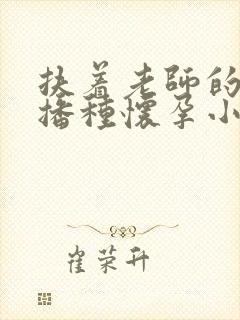 扶着老师的
播种懷孕小
崔荣升